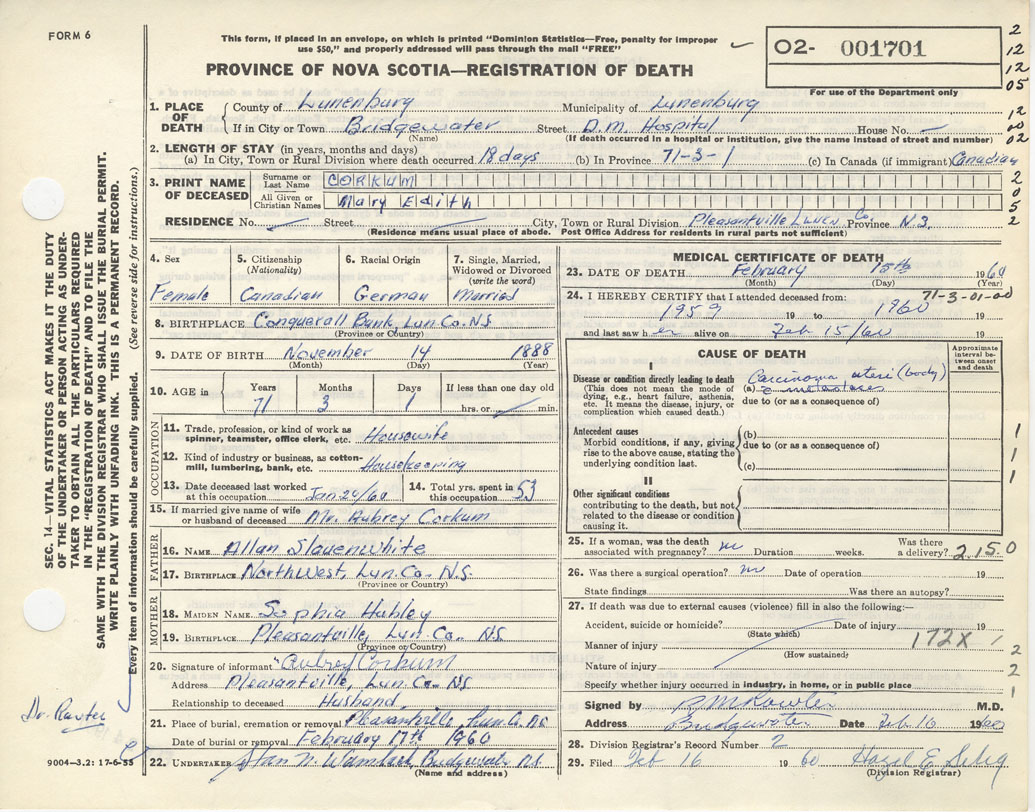 FORM 6
This form, if placed in an envelope, on which is printed "Dominion Statistics—Free, penalty for improper
use $50," and properly addressed will pass through the mail "FREE"
PROVINCE OF NOVA SCOTIA—REGISTRATION OF DEATH
02- 001701
For use of the Department only
2
12
12
05
12
00
02
2
0
5
2
SEC. 14—VITAL STATISTICS ACT MAKES IT THE DUTY
OF THE UNDERTAKER OR PERSON ACTING AS UNDER-
TAKER TO OBTAIN ALL THE PARTICULARS REQUIRED
IN THE "REGISTRATION OF DEATH" AND TO FILE THE
SAME WITH THE DIVISION REGISTRAR WHO SHALL ISSUE THE BURIAL PERMIT.
WRITE PLAINLY WITH UNFADING INK. THIS IS A PERMANENT RECORD.
Every item of information should be carefully supplied. (See reverse side for instructions.)
1. PLACE OF DEATH
County of Lunenburg Municipality of Lunenburg
If in City or Town Bridgewater Street D.M. Hospital House No. —
(Name) (If death occurred in a hospital or institution, give the name instead of street and number)
2. LENGTH OF STAY (in years, months and days)
(a) In City, Town or Rural Division where death occurred 18 days (b) In Province 71-3-1 (c) In Canada (if immigrant) Canadian
3. PRINT NAME OF DECEASED
Surname or Last Name CORKUM
All Given or Christian Names Mary Edith
RESIDENCE No. Street City, Town or Rural Division Pleasantville Lunen Co. Province N.S.
(Residence means usual place of abode. Post Office Address for residents in rural parts not sufficient)
4. Sex
Female
5. Citizenship
(Nationality)
Canadian
6. Racial Origin
German
7. Single, Married,
Widowed or Divorced
(write the word)
Married
8. BIRTHPLACE Conquerall Bank, Lun. Co. N.S
(Province or Country)
9. DATE OF BIRTH November 14 1888
(Month) (Day) (Year)
10. AGE in
Years Months Days If less than one day old
71 3 1 hrs. or min.
OCCUPATION
11. Trade, profession, or kind of work as
spinner, teamster, office clerk, etc. Housewife
12. Kind of industry or business, as cotton-
mill, lumbering, bank, etc. Housekeeping
13. Date deceased last worked
at this occupation Jan 29/60
14. Total yrs. spent in
this occupation 53
15. If married give name of wife
or husband of deceased Mr. Aubrey Corkum
FATHER
16. NAME Allan Slauenwhite
17. BIRTHPLACE NorthWest, Lun. Co. N.S.
(Province or Country)
MOTHER
18. MAIDEN NAME Sophia Hubley
19. BIRTHPLACE Pleasantville, Lun. Co. N.S.
(Province or Country)
20. Signature of informant "Aubrey Corkum
Address Pleasantville, Lun. Co. NS
Relationship to deceased Husband
21. Place of burial, cremation or removal Pleasantville, Lun. Co. NS
Date of burial or removal February 17th 1960
22. UNDERTAKER Bridgewater N.S.
(Name and address)
9004—3.2: 17-6-55
MEDICAL CERTIFICATE OF DEATH
23. DATE OF DEATH February 15th 1960
(Month) (Day) (Year)
24. I HEREBY CERTIFY that I attended deceased from: 71-3-01-00
1959 19 to 1960
and last saw her alive on Feb 15/60 19
CAUSE OF DEATH
Approximate interval be-tween onset and death
I
Disease or condition directly leading to death
(This does not mean the mode of
dying, e.g., heart failure, asthenia,
etc. It means the disease, injury, or
complication which caused death.)
(a) Carcinoma uteri (body)
c metastases
due to (or as a consequence of)
Antecedent causes
Morbid conditions, if any, giving
rise to the above cause, stating the
underlying condition last.
(b)
due to (or as a consequence of)
(c)
1
1
1
II
Other significant conditions
contributing to the death, but not
related to the disease or condition
causing it.
25. If a woman, was the death
associated with pregnancy? no Duration weeks. Was there
a delivery? 2.15.0
26. Was there a surgical operation? no Date of operation 19
State findings Was there an autopsy?
27. If death was due to external causes (violence) fill in also the following:—
Accident, suicide or homicide? Date of injury 19
(State which)
Manner of injury 172X 1
(How sustained)
Nature of injury
2
2
1
Specify whether injury occurred in industry, in home, or in public place
Signed by M.D.
Address Bridgewater Date Feb 16 1960
28. Division Registrar's Record Number 2
29. Filed Feb 16 1960 Hazel E
(Division Registrar)